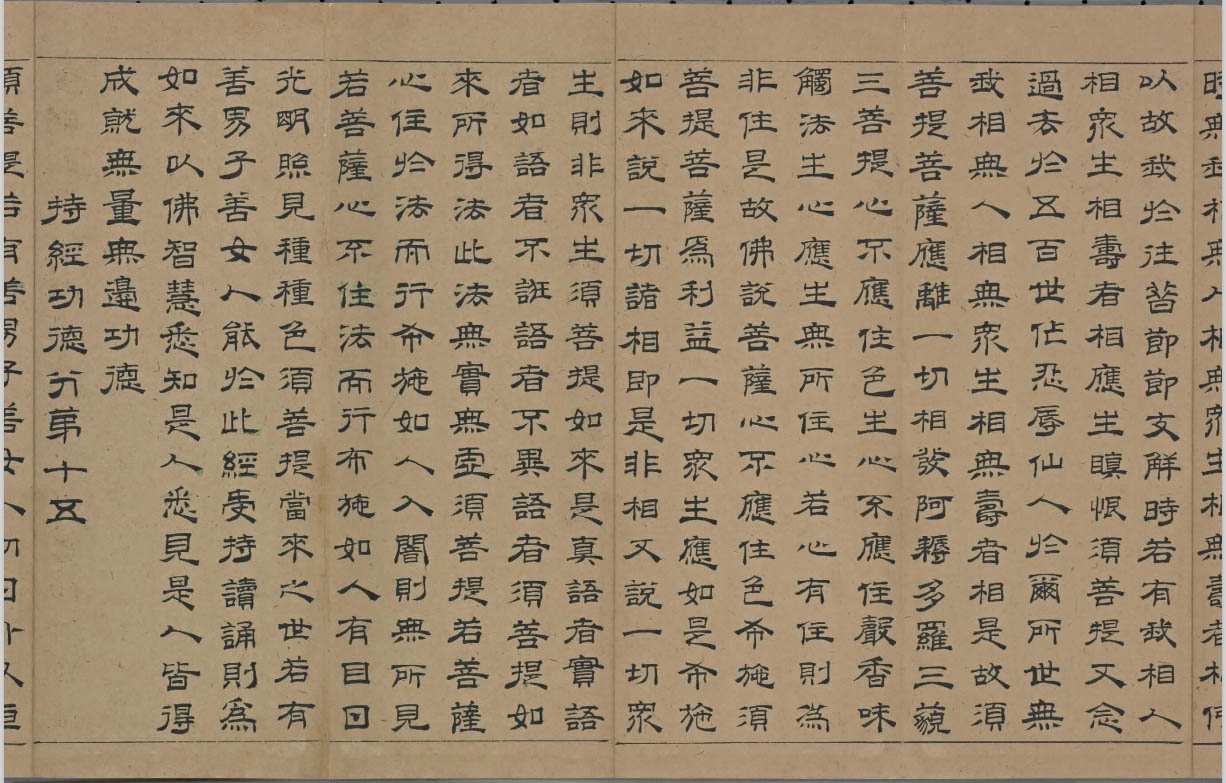 時無我相無人相無眾生相無壽者相何
以故我於往昔節節支解時若有我相人
相眾生相壽者相應生瞋恨須菩提又念
過去於五百世作忍辱仙人於爾所世無
我相無人相無眾生相無壽者相是故須
菩提菩薩應離一切相發阿耨多羅三藐
三菩提心不應住色生心不應住聲香味
觸法生心應生無所住心若心有住則為
非住是故佛說菩薩心不應住色布施須
菩提菩薩為利益一切眾生應如是布施
如來說一切諸相即是非相又說一切眾
生則非眾生須菩提如來是真語者實語
者如語者不誑語者不異語者須菩提如
來所得法此法無實無虛須菩提若菩薩
心住於法而行布施如人入闇則無所見
若菩薩心不住法而行布施如人有目日
光明照見種種色須菩提當來之世若有
善男子善女人能於此經受持讀誦則為
如來以佛智慧悉知是人悉見是人皆得
成就無量無邊功德
持經功德分第十五
須菩提若有善男子善女人初日分以恒